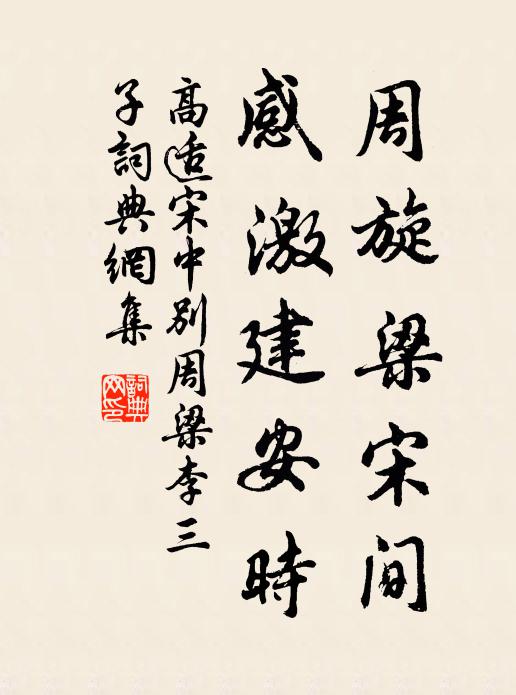 周旋梁宋间
感激建安時
高适宋中别周梁李三
子詞典網集
詞典网印